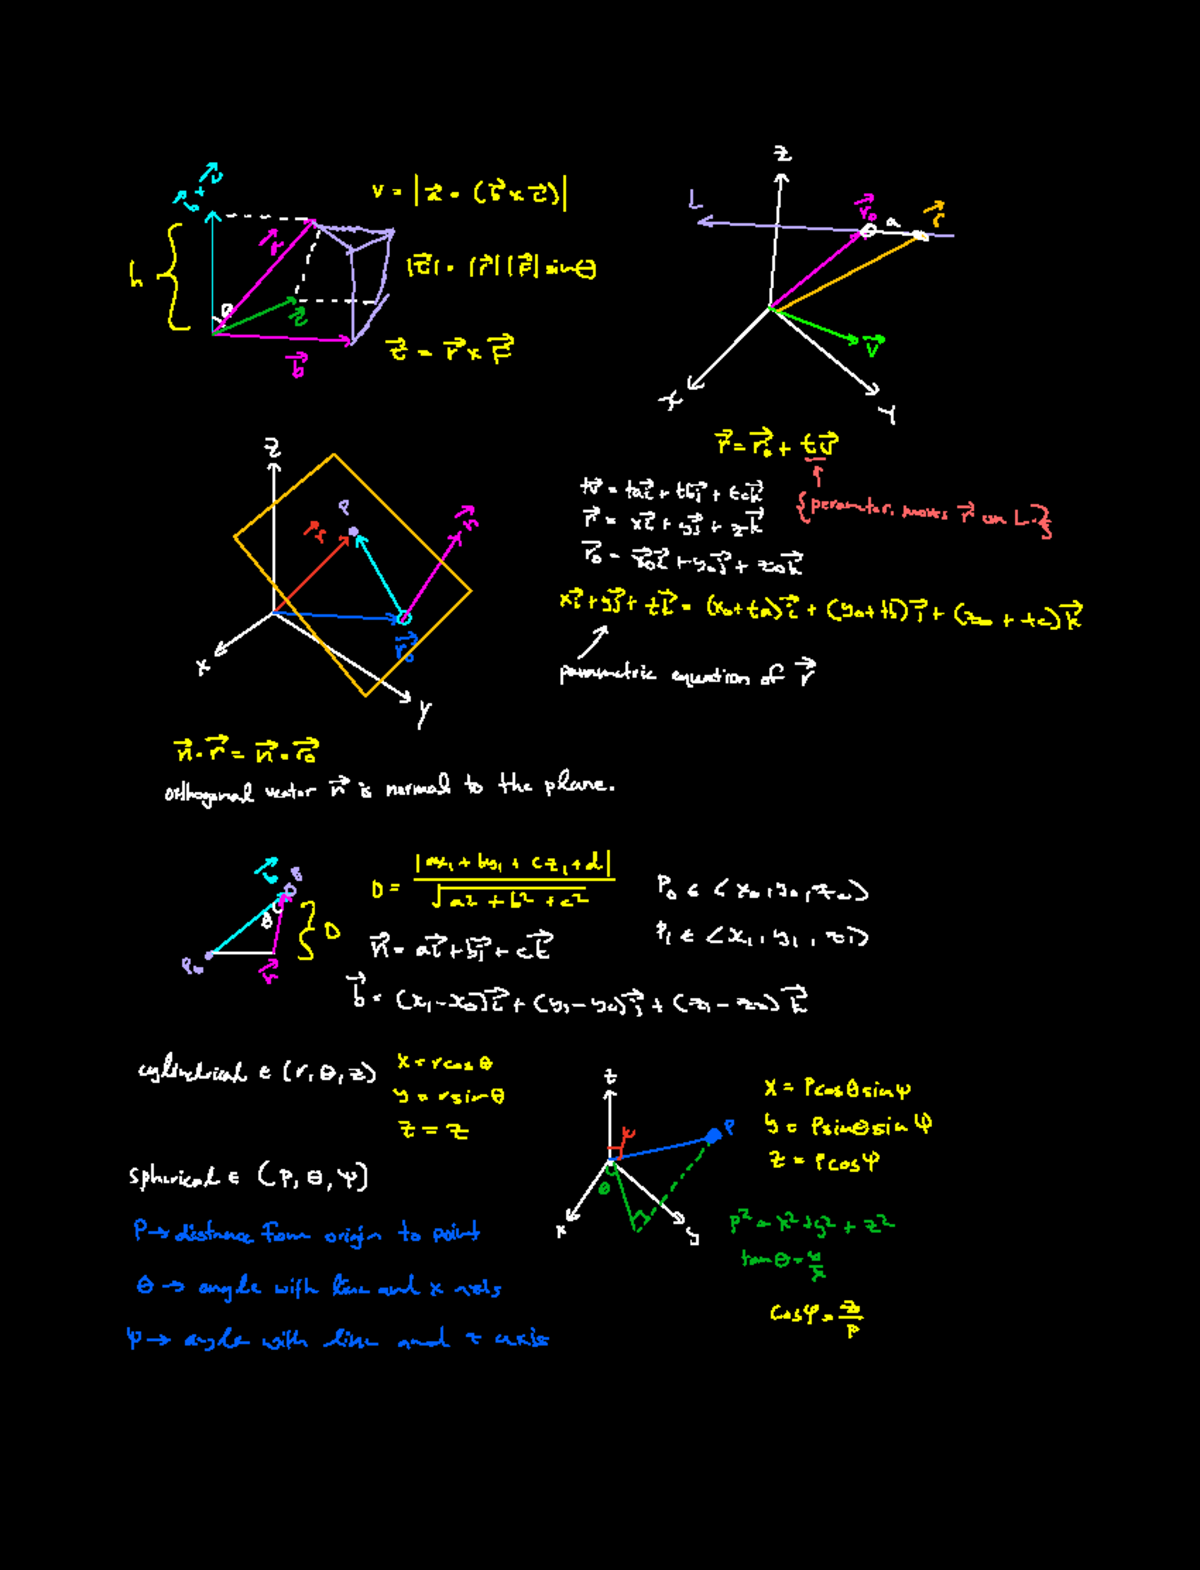 V = |a⃗ · (b⃗ × c⃗)|
|τ⃗| = |r⃗| |F⃗| sinθ
τ⃗ = r⃗ × F⃗
h
θ
b⃗
c⃗
z
L
r⃗₀
a
r⃗
v⃗
x
y
r⃗ = r⃗₀ + tv⃗
tv⃗ = tai⃗ + tbj⃗ + tck⃗
{perameter, moves r⃗ on L.}
r⃗ = xi⃗ + yj⃗ + zk⃗
r⃗₀ = x₀i⃗ + y₀j⃗ + z₀k⃗
xi⃗ + yj⃗ + zk⃗ = (x₀ + ta)i⃗ + (y₀ + tb)j⃗ + (z₀ + tc)k⃗
parametric equation of r⃗
z
P
r⃗
n⃗
r⃗₀
x
y
n⃗ · r⃗ = n⃗ · r⃗₀
orthogonal vector n⃗ is normal to the plane.
b⃗
θ
D
P₀
n⃗
D = |ax₁ + by₁ + cz₁ + d| / √a² + b² + c²
P₀ ∈ <x₀, y₀, z₀>
P₁ ∈ <x₁, y₁, z₁>
n⃗ = ai⃗ + bj⃗ + ck⃗
b⃗ = (x₁ - x₀)i⃗ + (y₁ - y₀)j⃗ + (z₁ - z₀)k⃗
cylindrical ∈ (r, θ, z)
x = rcosθ
y = rsinθ
z = z
spherical ∈ (ρ, θ, ψ)
ρ → distance from origin to point
θ → angle with line and x axis
ψ → angle with line and z axis
z
ψ
P
θ
x
y
x = ρcosθsinψ
y = ρsinθsinψ
z = ρcosψ
ρ² = x² + y² + z²
tanθ = y/x
cosψ = z/ρ